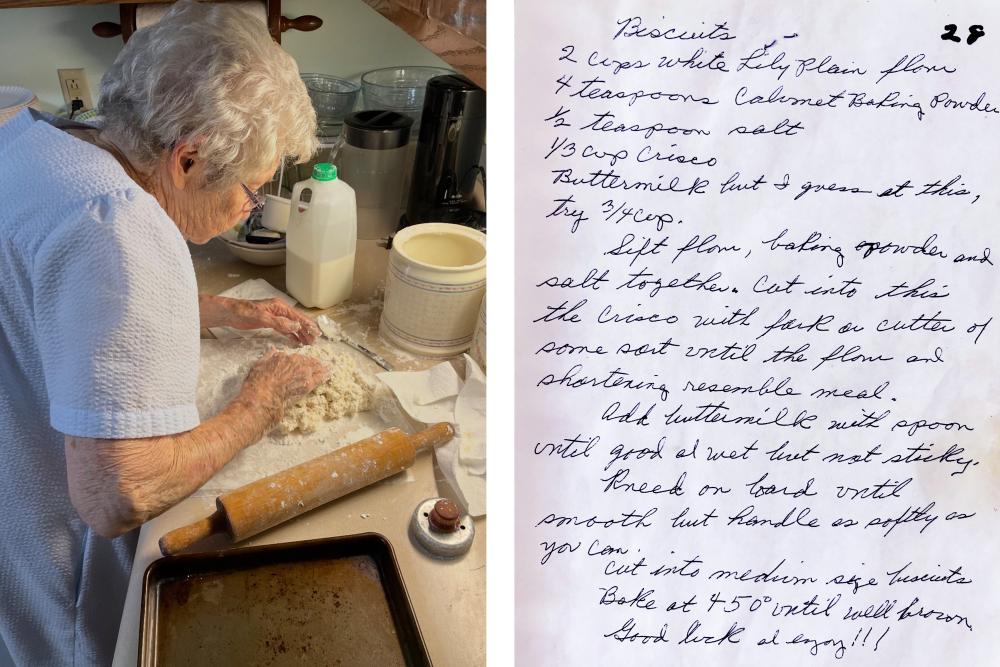 Biscuits
28
2 cups white Lily Plain flour
4 teaspoons Calumet Baking Powder
1/2 teaspoon salt
1/3 cup Crisco
Buttermilk but I guess at this,
try 3/4 cup.
Sift flour, baking powder and
salt together. Cut into this
the Crisco with fork or cutter of
some sort until the flour and
shortening resemble meal.
Add buttermilk with spoon
until good al wet but not sticky.
Kneed on board until
smooth but handle as softly as
you can.
Cut into medium size biscuits
Bake at 450° until well brown.
Good luck al enjoy!!!